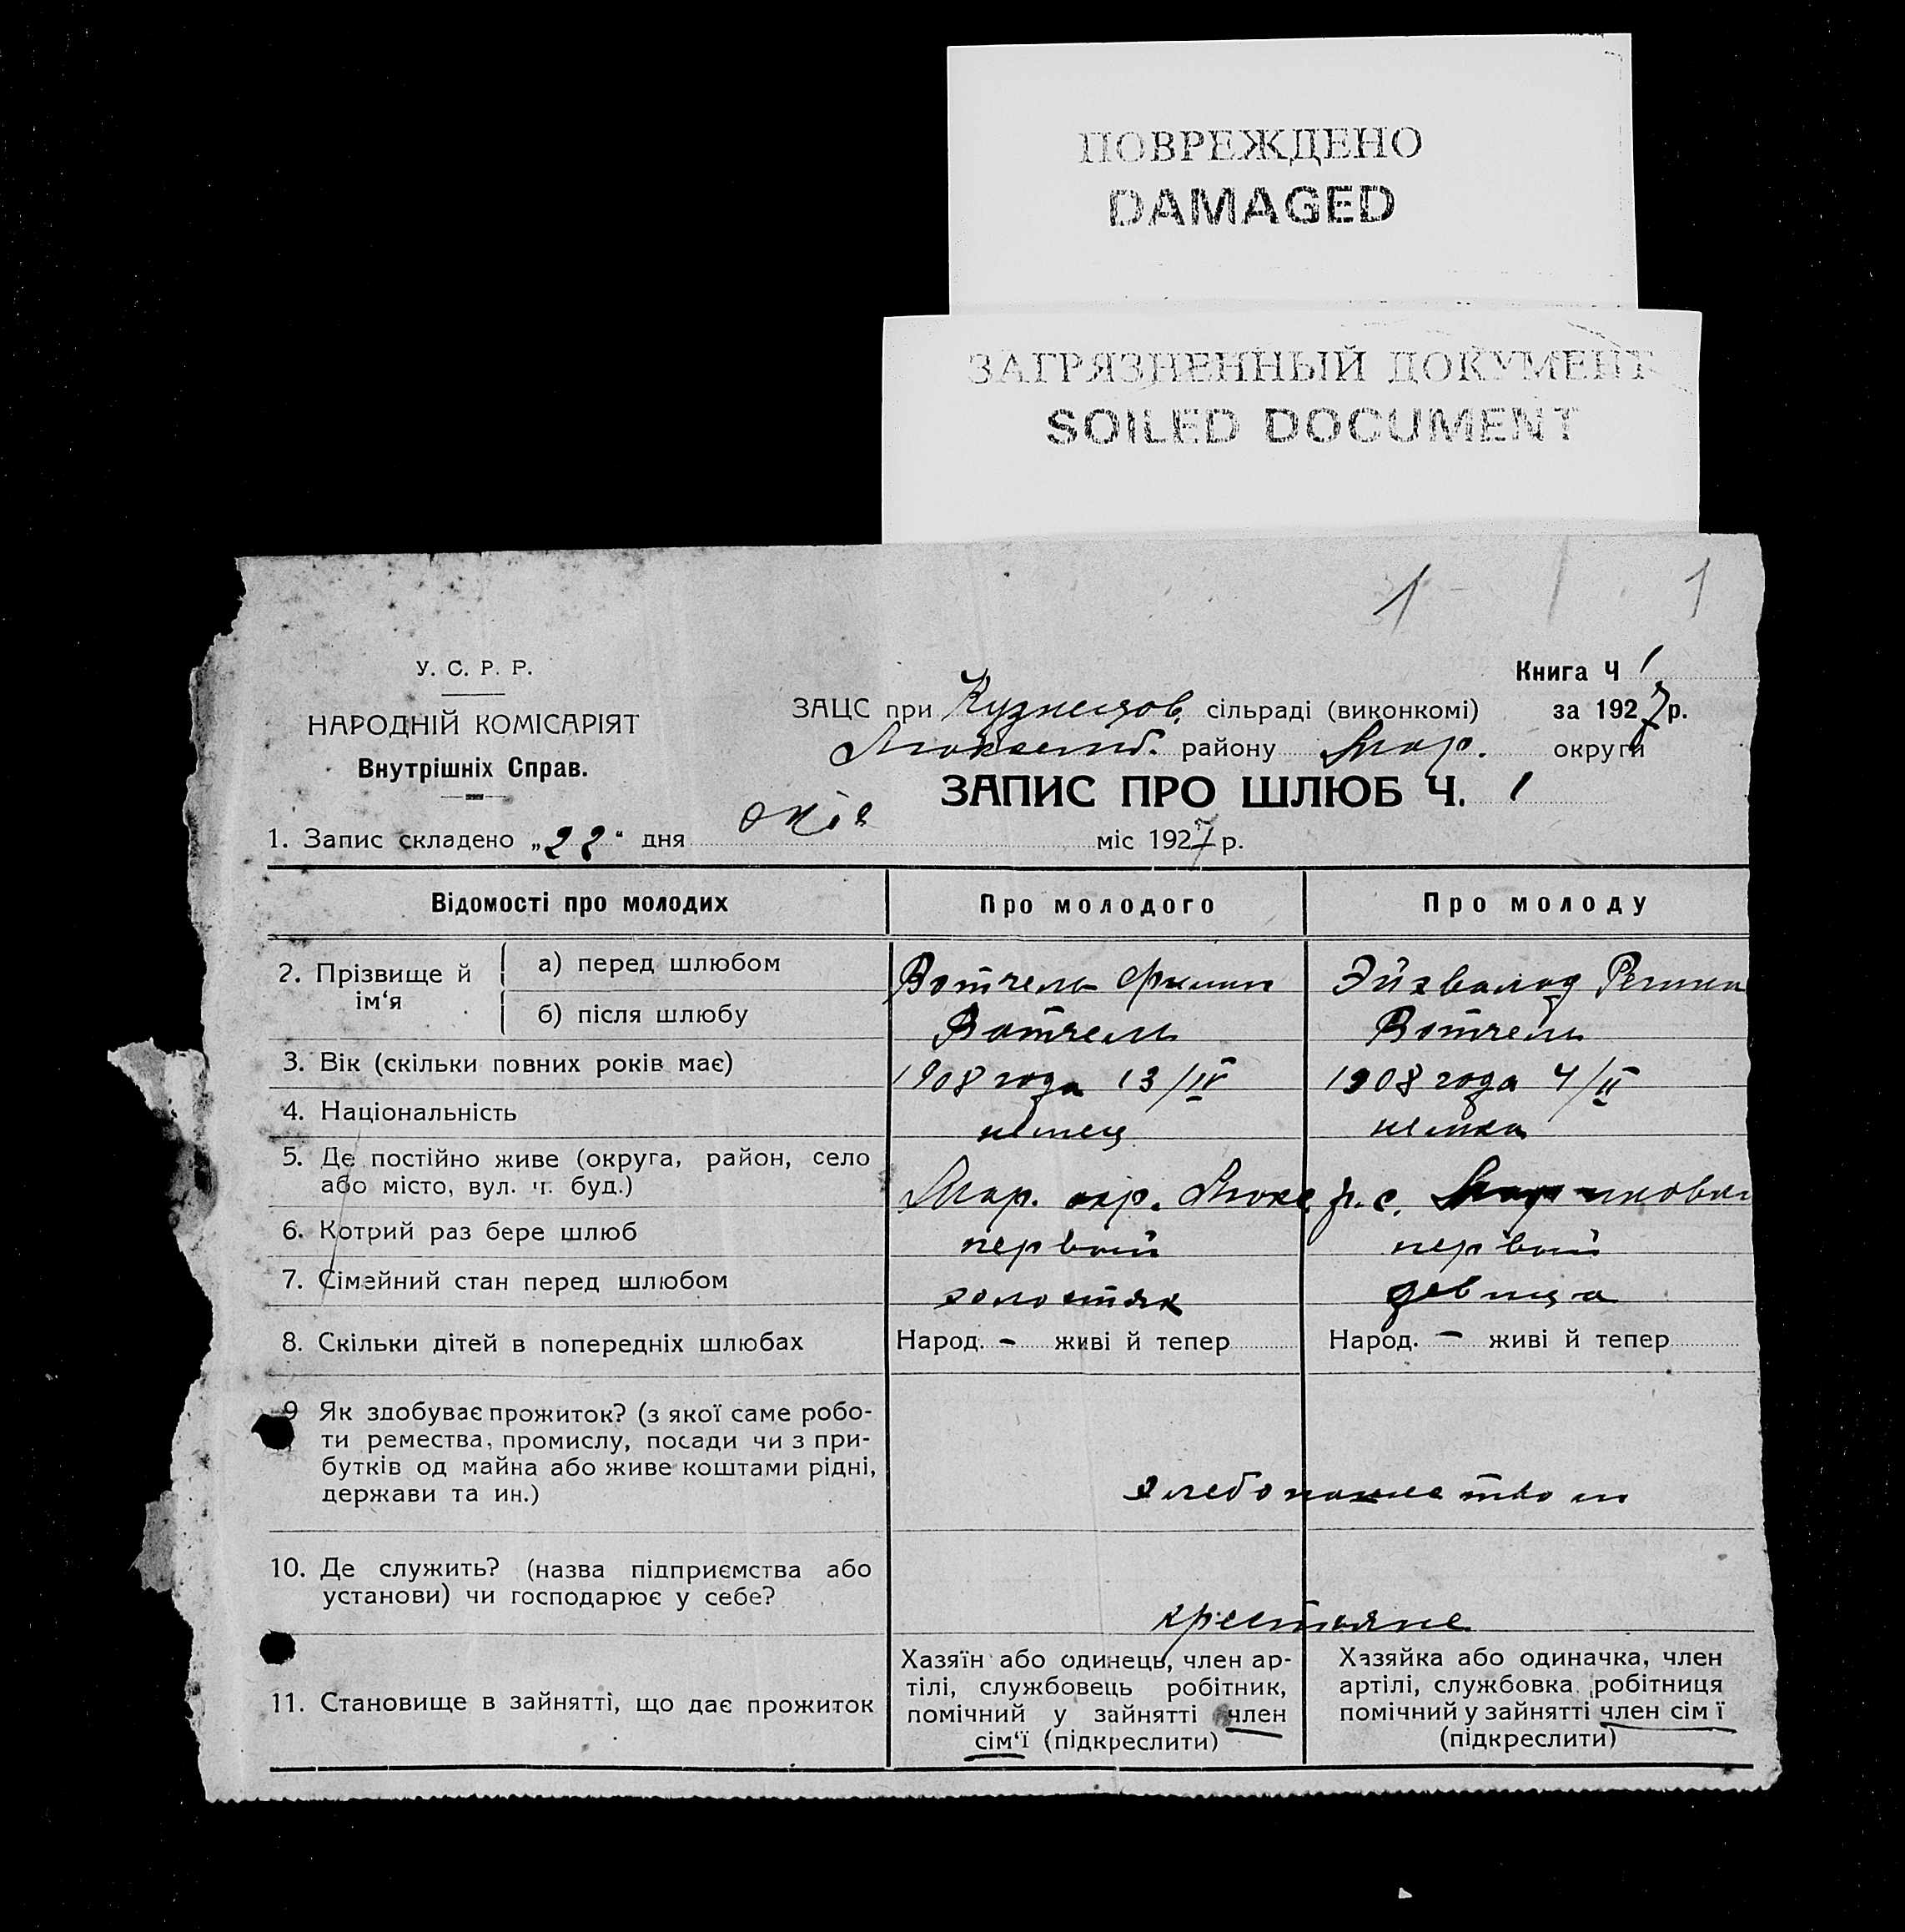 ПОВРЕЖДЕНО
DAMAGED
ЗАГРЯЗНЕННЫЙ ДОКУМЕНТ
SOILED DOCUMENT
1 1
У. С. Р. Р.
НАРОДНІЙ КОМІСАРІЯТ
Внутрішніх Справ.
Книга Ч 1
ЗАЦС при Кузнецов. сільраді (виконкомі) за 1927р.
району Мар. округи
ЗАПИС ПРО ШЛЮБ Ч. 1
1. Запис складено „22“ дня міс 1927 р.
Відомості про молодих
Про молодого
Про молоду
2. Прізвище й ім‘я
а) перед шлюбом
Вотчель Филип
Эйхвальд Регина
б) після шлюбу
Вотчель
Вотчель
3. Вік (скільки повних років має)
1908 года 13/IV
1908 года 4/II
4. Національність
немец
немка
5. Де постійно живе (округа, район, село
або місто, вул. ч. буд.)
Мар. окр. р. с.
6. Котрий раз бере шлюб
первый
первый
7. Сімейний стан перед шлюбом
холостяк
девица
8. Скільки дітей в попередніх шлюбах
Народ. – живі й тепер
Народ. – живі й тепер
9 Як здобуває прожиток? (з якої саме робо-
ти ремества, промислу, посади чи з при-
бутків од майна або живе коштами рідні,
держави та ин.)
хлебопашеством
10. Де служить? (назва підприємства або
установи) чи господарює у себе?
крестьяне
11. Становище в зайнятті, що дає прожиток
Хазяїн або одинець, член ар-
тілі, службовець робітник,
помічний у зайнятті член
сім‘ї (підкреслити)
Хазяйка або одиначка, член
артілі, службовка робітниця
помічний у зайнятті член сім ї
(підкреслити)